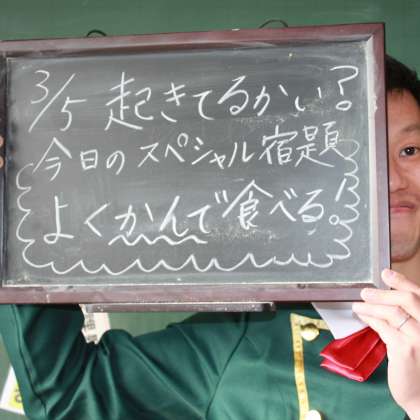 3/5 起きてるかい?
今日のスペシャル宿題
よくかんで食べる!